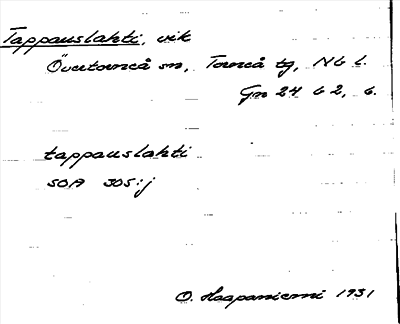 Tappauslahti, vik
Övertorneå sn, Torneå tg, Nb l.
Gn 24 b 2, 6.
tappauslahti
SOA 305:j
O. Haapaniemi 1931